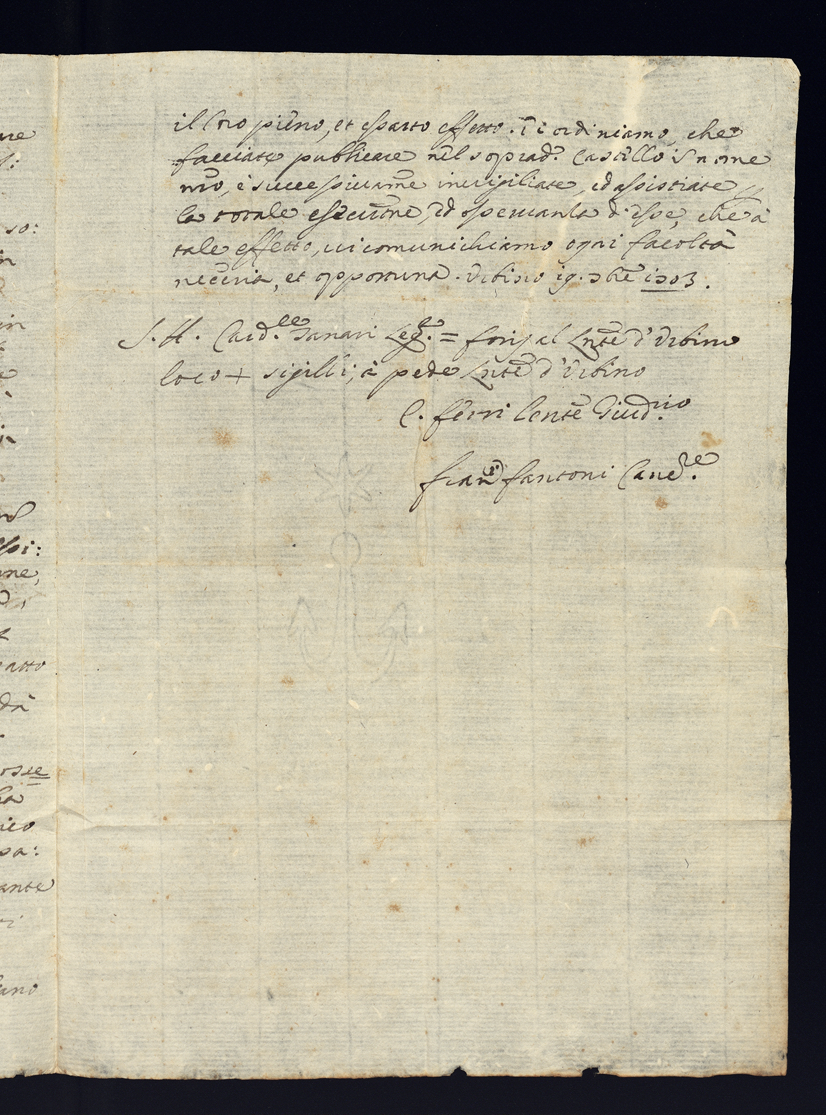 il loro pieno, et esatto effetto. Vi ordiniamo, che
facciate publicare nel soprad.° Castello in nome
nro, e successivame invigiliate, ed assistiate
la totale esecutne, ed osservanza d'esse, che à
tale effetto, vi comunichiamo ogni facoltà
necēria, et opportuna. Urbino 19. 9bre 1703.
S. H. Card.le Tanari Leg.to = foris al Lnte d'Urbino
loco + sigilli; à pede Lnte d'Urbino
C. ferri lcnte Giud.rio
fran.co fantoni Canc.re
me
so:
in
in
ssi:
ne,
atto
dà
osse
ico
sa:
ante
ano